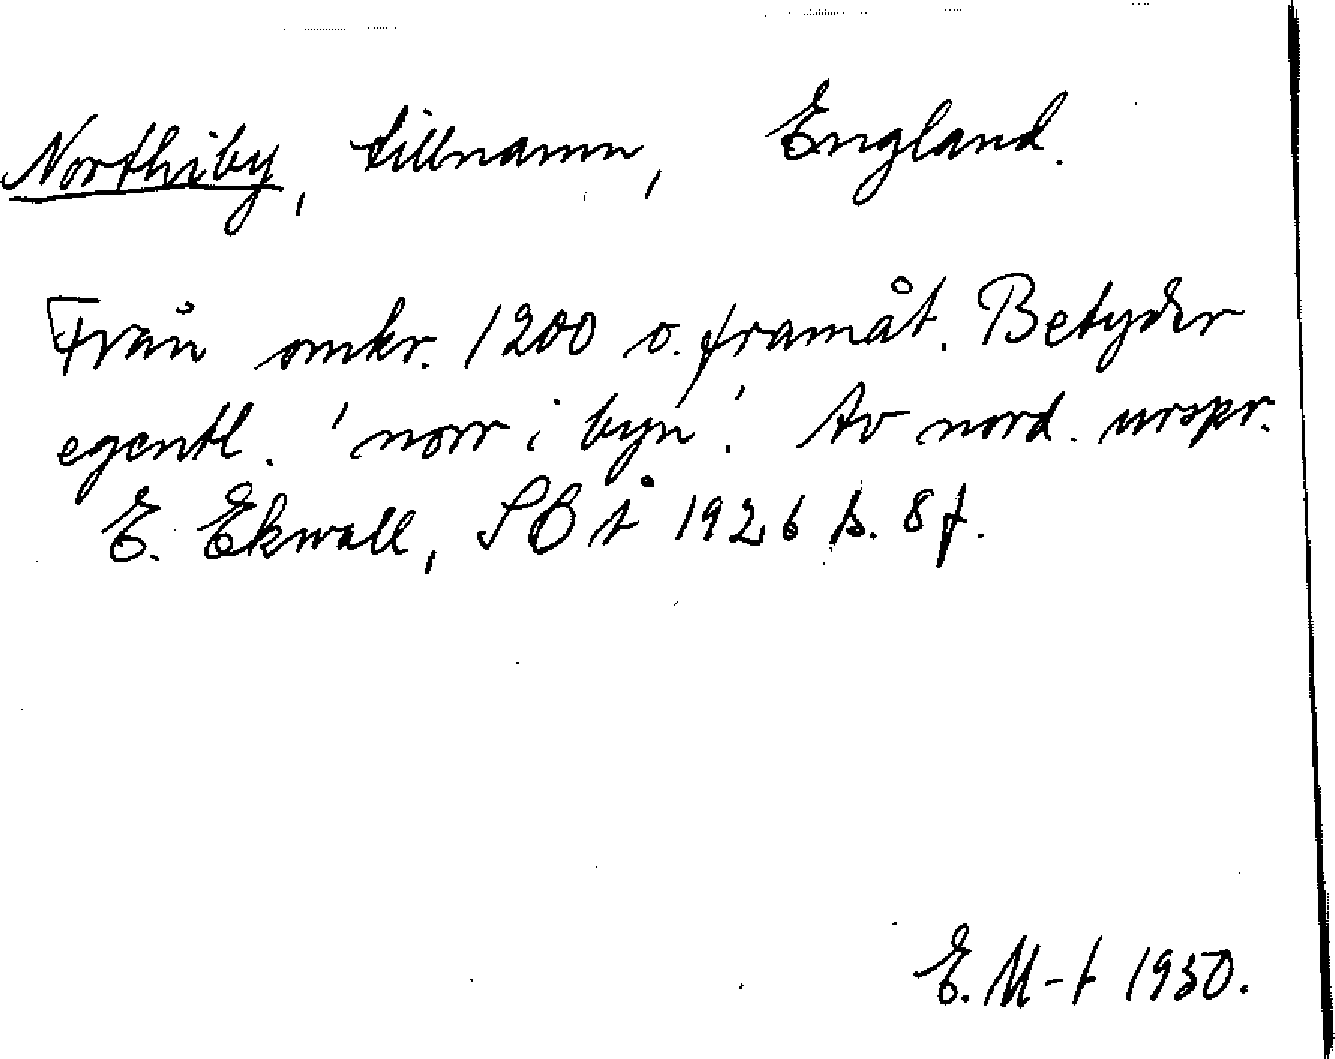 Northiby, tillnamn, England.
Från omkr. 1200 o. framåt. Betyder
egentl. 'norr i byn'. Av nord. urspr.
E. Ekwall, SOÅ 1926 s. 8 f.
E. M-t 1930.